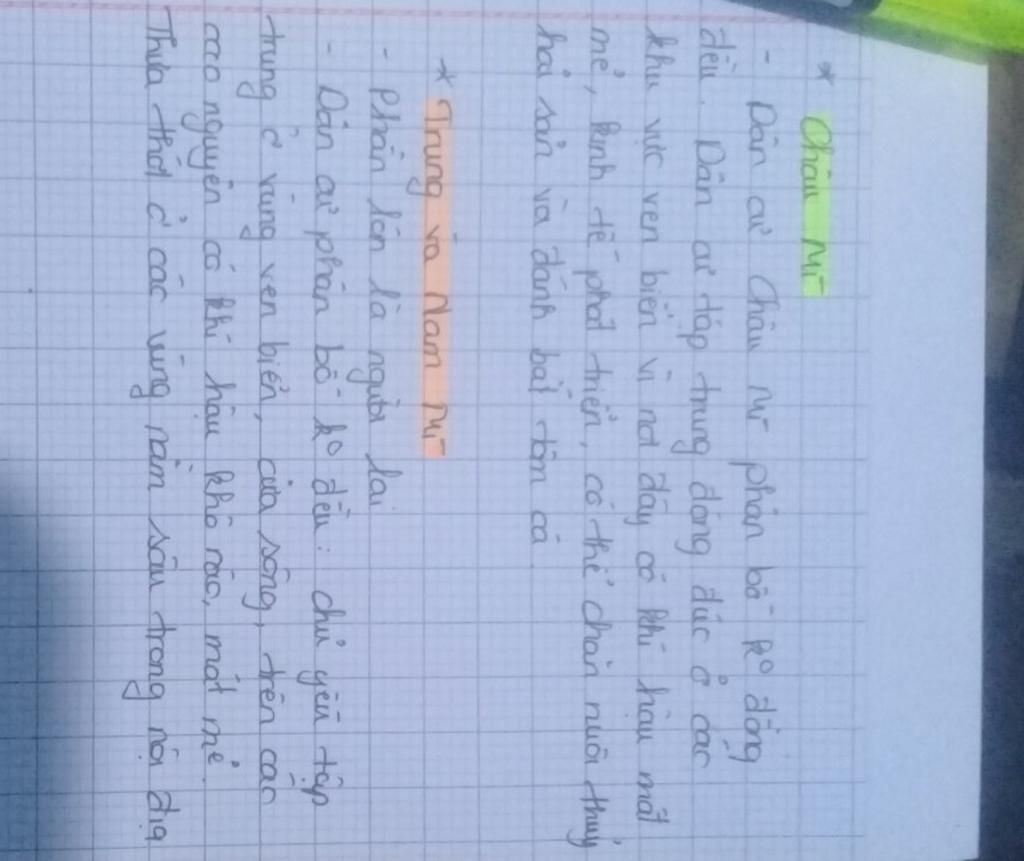 * Châu Mĩ
- Dân cư Châu Mĩ phân bố k° đồng
đều. Dân cư tập trung đông đúc ở các
khu vực ven biển vì nơi đây có khí hậu mát
mẻ, kinh tế phát triển, có thể chăn nuôi thuỷ
hải sản và đánh bắt tôm cá
* Trung và Nam Mĩ
- phần lớn là người lai
- Dân cư phân bố k° đều: chủ yếu tập
trung ở vùng ven biển, cửa sông, trên các
cao nguyên có khí hậu khô ráo, mát mẻ.
Thưa thớt ở các vùng nằm sâu trong nội địa